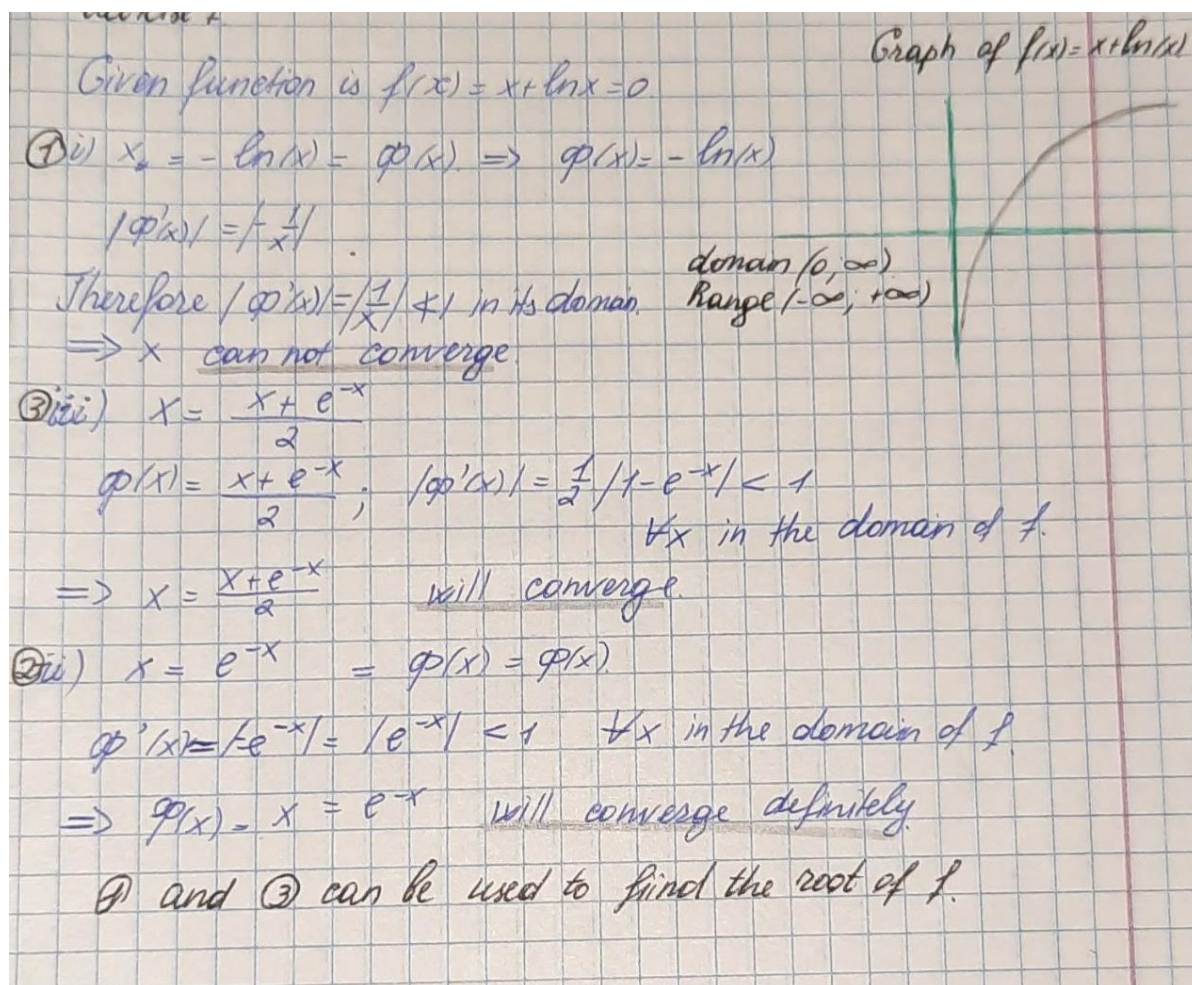 Graph of f(x)=x+ln(x)
Given function is f(x) = x+lnx=0
① i) x = - ln(x) = φ(x) => φ(x)= - ln(x)
|φ'(x)| = |-1/x|
domain (0, ∞)
Therefore |φ'(x)|=|1/x| ≮1 in its doman. Range (-∞; +∞)
=> x can not converge.
③ iii) x = (x + e^-x)/2
φ(x) = (x + e^-x)/2 ; |φ'(x)| = 1/2 |1-e^-x| < 1
∀x in the domain of f.
=> x = (x+e^-x)/2 will converge.
② ii) x = e^-x = φ(x) = φ(x)
φ'(x)=|-e^-x| = |e^-x| < 1 ∀x in the domain of f.
=> φ(x) = x = e^-x will converge definitely.
and ③ can be used to fiind the root of f.